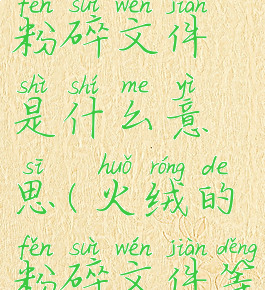 fěn suì wén jiàn
粉碎文件
shì shí me yì
是什么意
sī huǒ róng de
思(火绒的
fěn suì wén jiàn děng
粉碎文件等